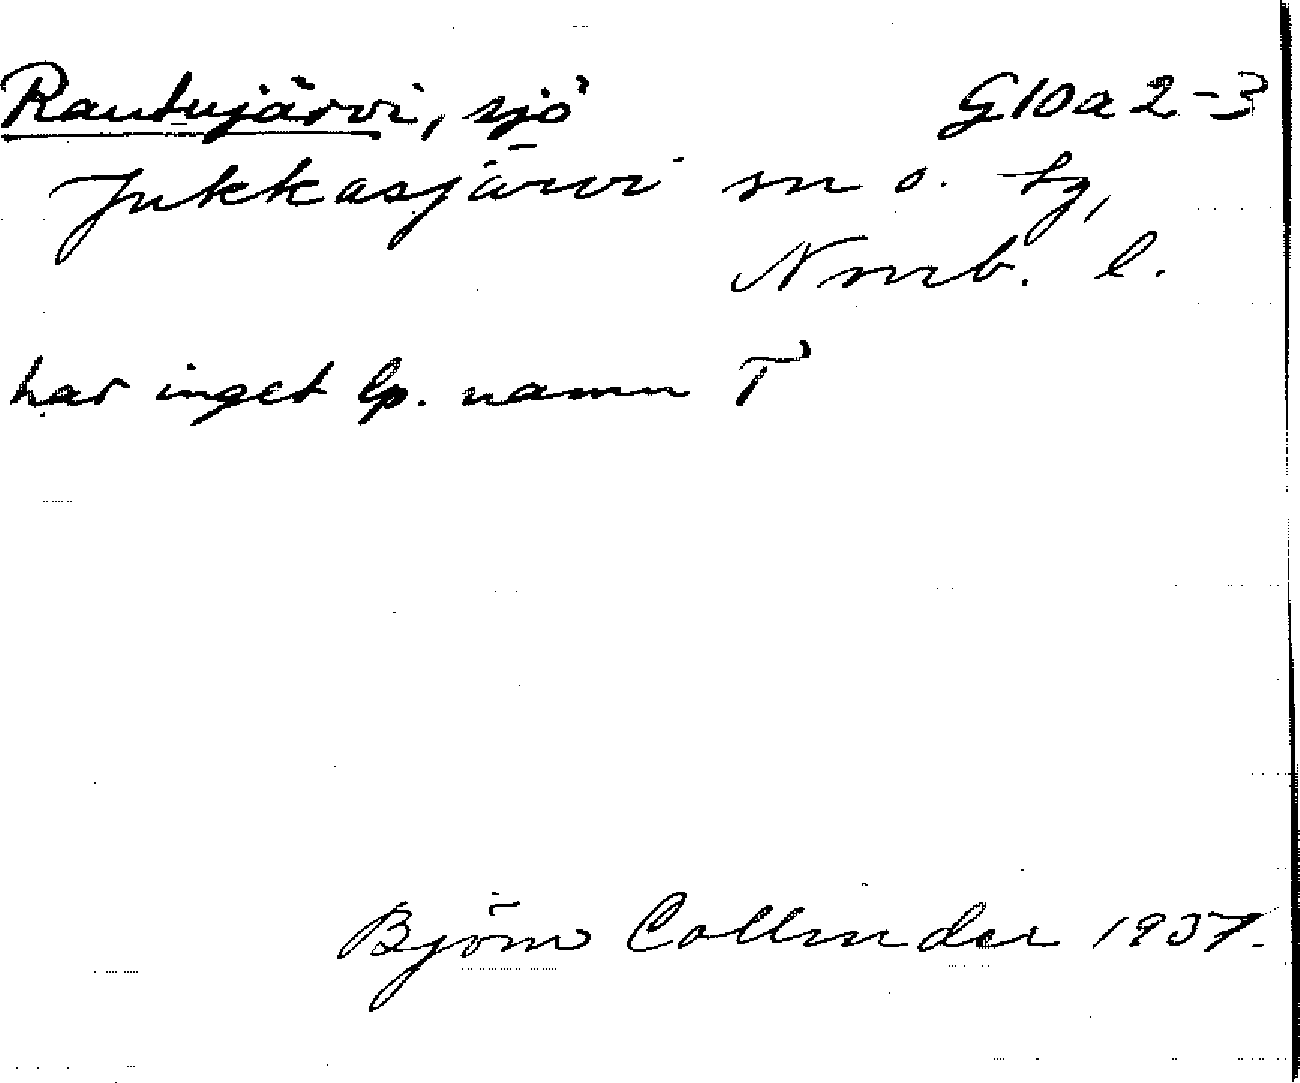 Rautujärvi, sjö G10a2-3
Jukkasjärvi sn o. tg,
Nrrb. l.
har inget lp. namn T
Björn Collinder 1937.